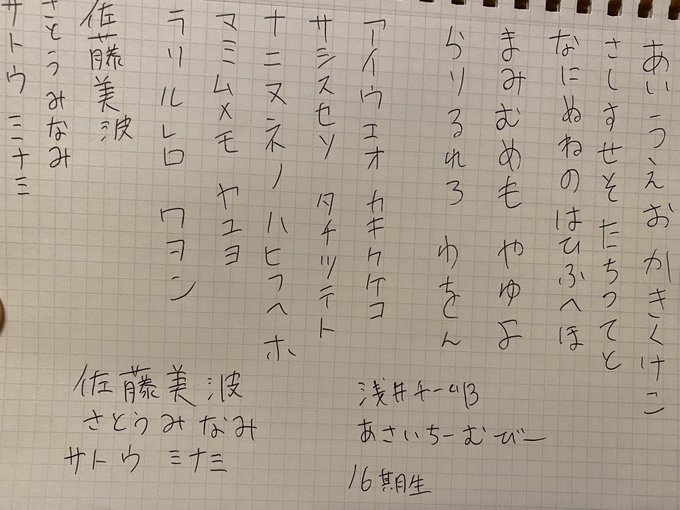 あいうえお かきくけこ
さしすせそ たちつてと
なにぬねのはひふへほ
まみむめも やゆよ
らりるれろ わをん
アイウエオ カキクケコ
サシスセソ タチツテト
ナニヌネノ ハヒフヘホ
マミムメモ ヤユヨ
ラリルレロ ワヲン
佐藤美波
さとうみなみ
サトウ ミナミ
佐藤美波
さとうみなみ
サトウ ミナミ
浅井チームB
あさいちーむびー
16期生